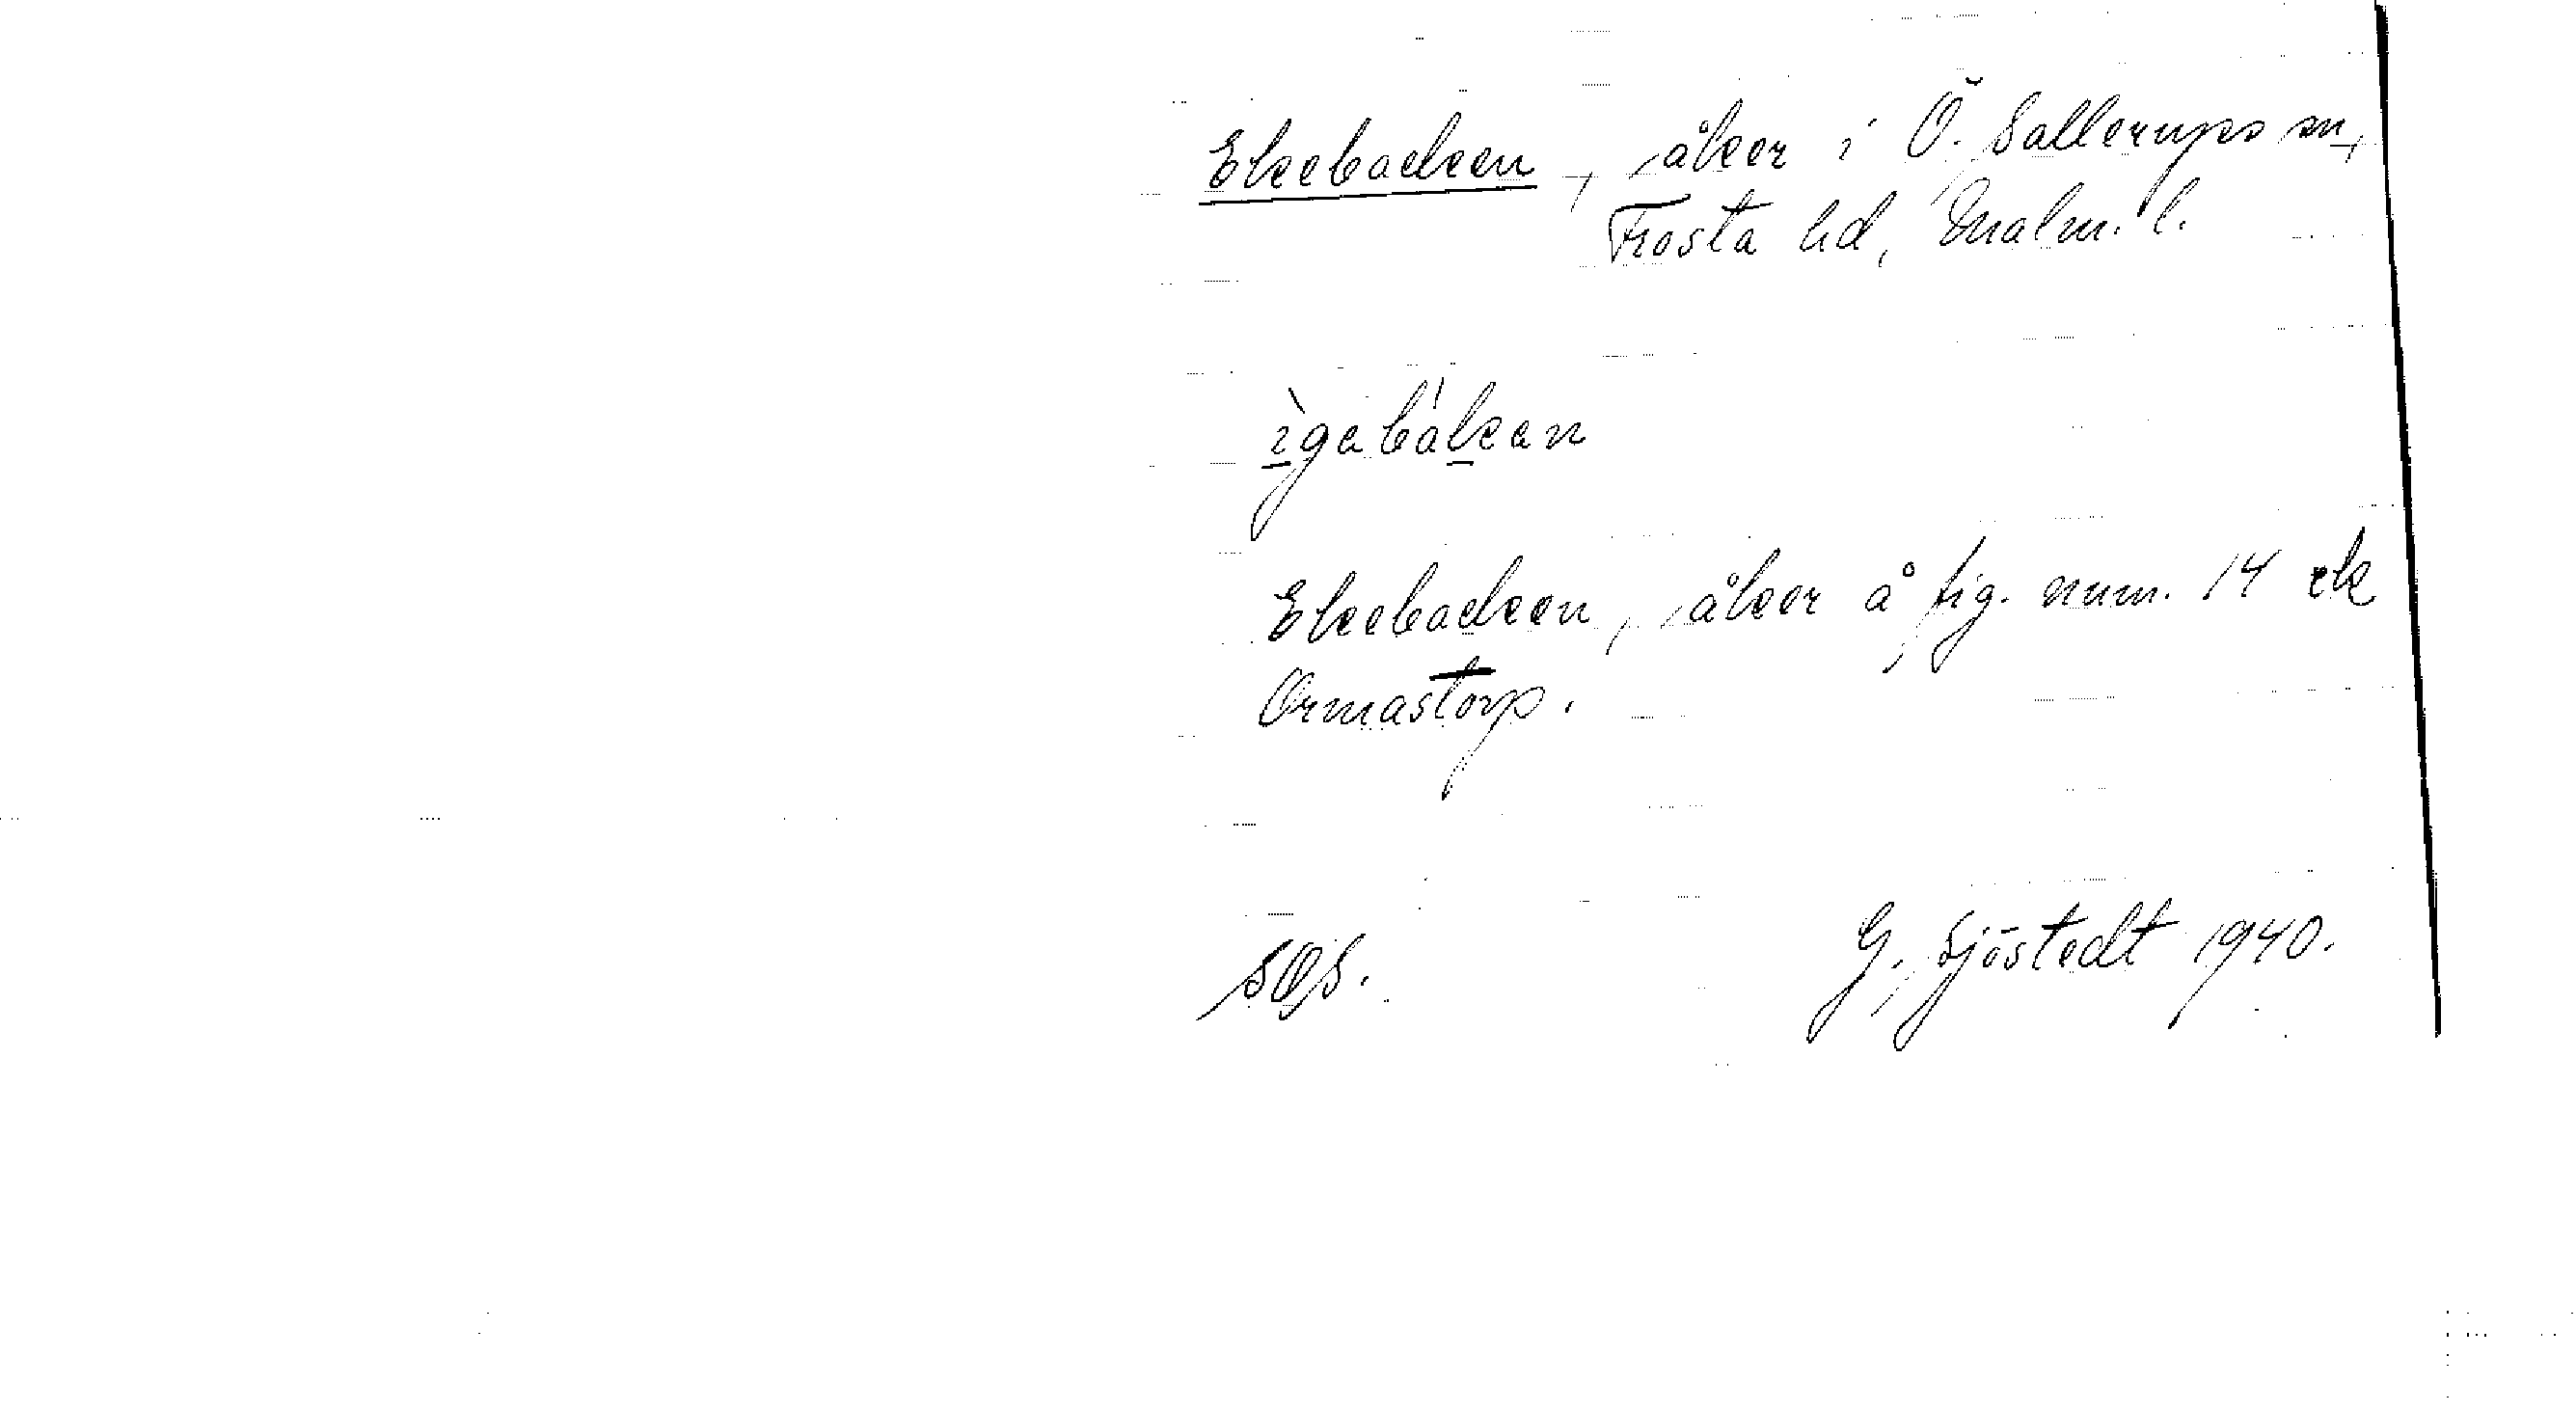 Ekebacken, åker i Ö. Sallerups sn,
Frosta hd, Malm. l.
ìgabákan
Ekebacken, åker å fig. num. 14 ek
Ormastorp.
SOS.
G. Sjöstedt 1940.